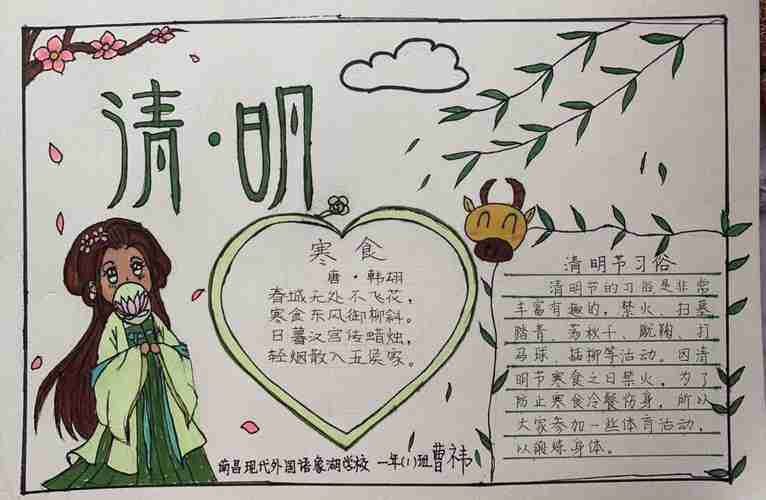 清·明
寒食
唐·韩翃
春城无处不飞花，
寒食东风御柳斜。
日暮汉宫传蜡烛，
轻烟散入五侯家。
清明节习俗
清明节的习俗是非常
丰富有趣的，禁火、扫墓
踏青、荡秋千、蹴鞠、打
马球、插柳等活动。因清
明节寒食之日禁火，为了
防止寒食冷餐伤身，所以
大家参加一些体育活动，
以锻炼身体。
南昌现代外国语象湖学校 一年(1)班曹祎